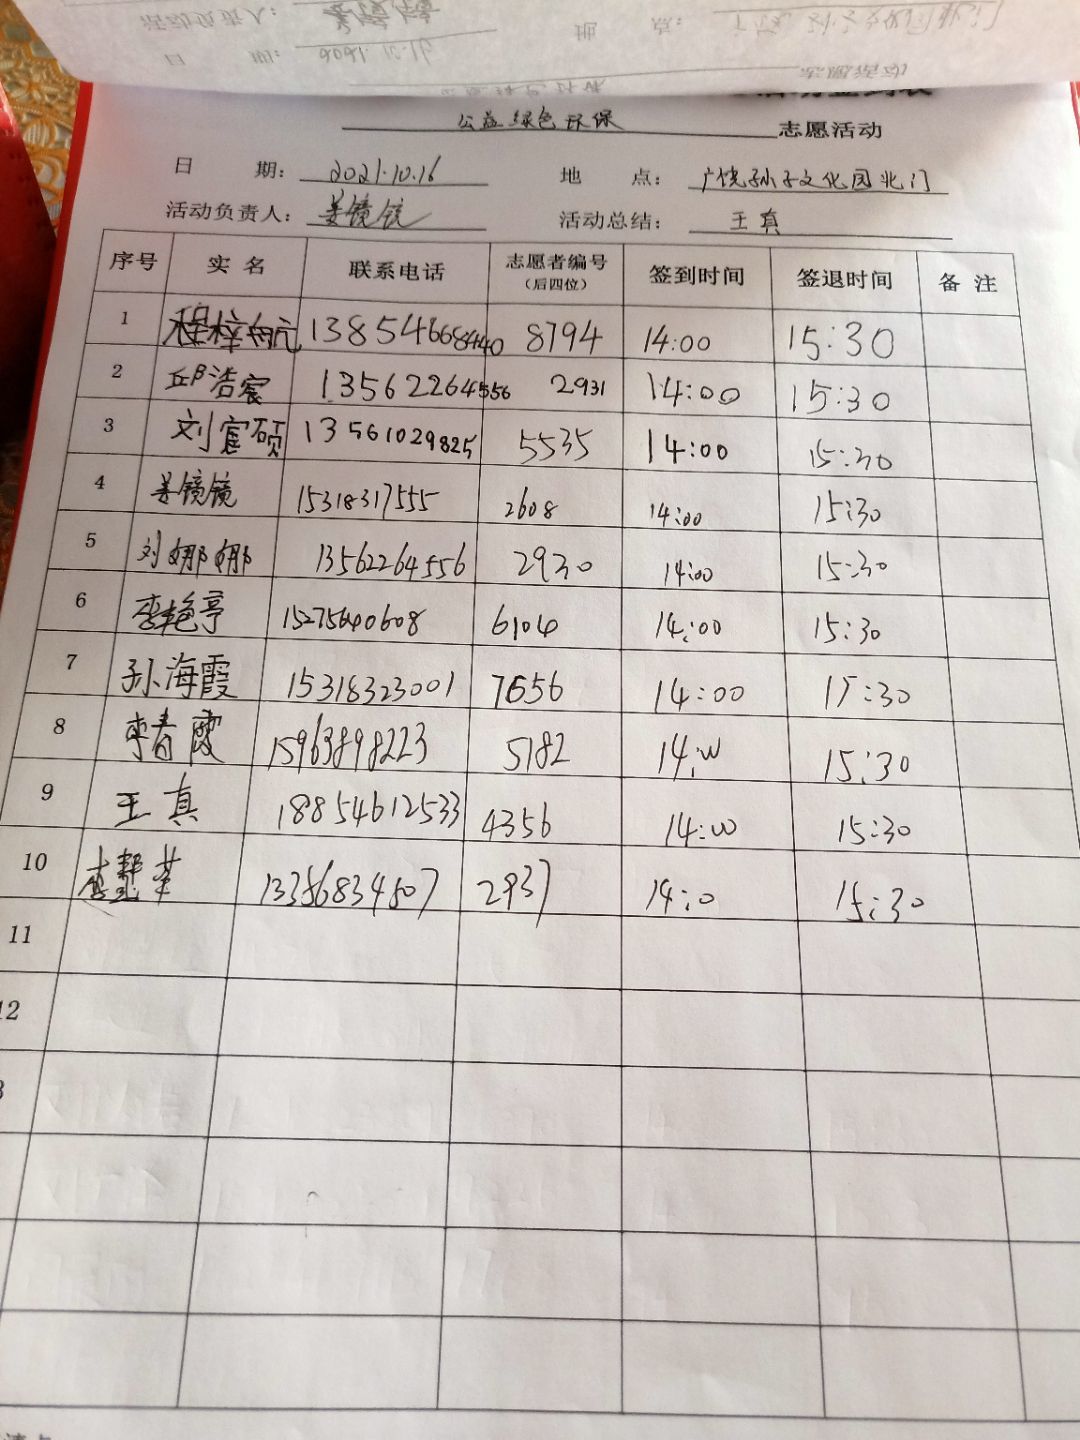 公益绿色环保 志愿活动
日 期: 2021.10.16 地 点: 广饶孙子文化园北门
活动负责人: 姜镜镜 活动总结: 王真
序号 实名 联系电话 志愿者编号(后四位) 签到时间 签退时间 备注
1 程梓航 13854668440 8794 14:00 15:30
2 邱浩宸 13562264556 2931 14:00 15:30
3 刘宦硕 13561029825 5535 14:00 15:30
4 姜镜镜 15318317555 2608 14:00 15:30
5 刘娜娜 13562264556 2930 14:00 15:30
6 李艳亭 15275640608 6104 14:00 15:30
7 孙海霞 15318323001 7656 14:00 15:30
8 李春霞 15963898223 5182 14:00 15:30
9 王真 18854612533 4356 14:00 15:30
10 13386834807 2937 14:0 15:30
11
12